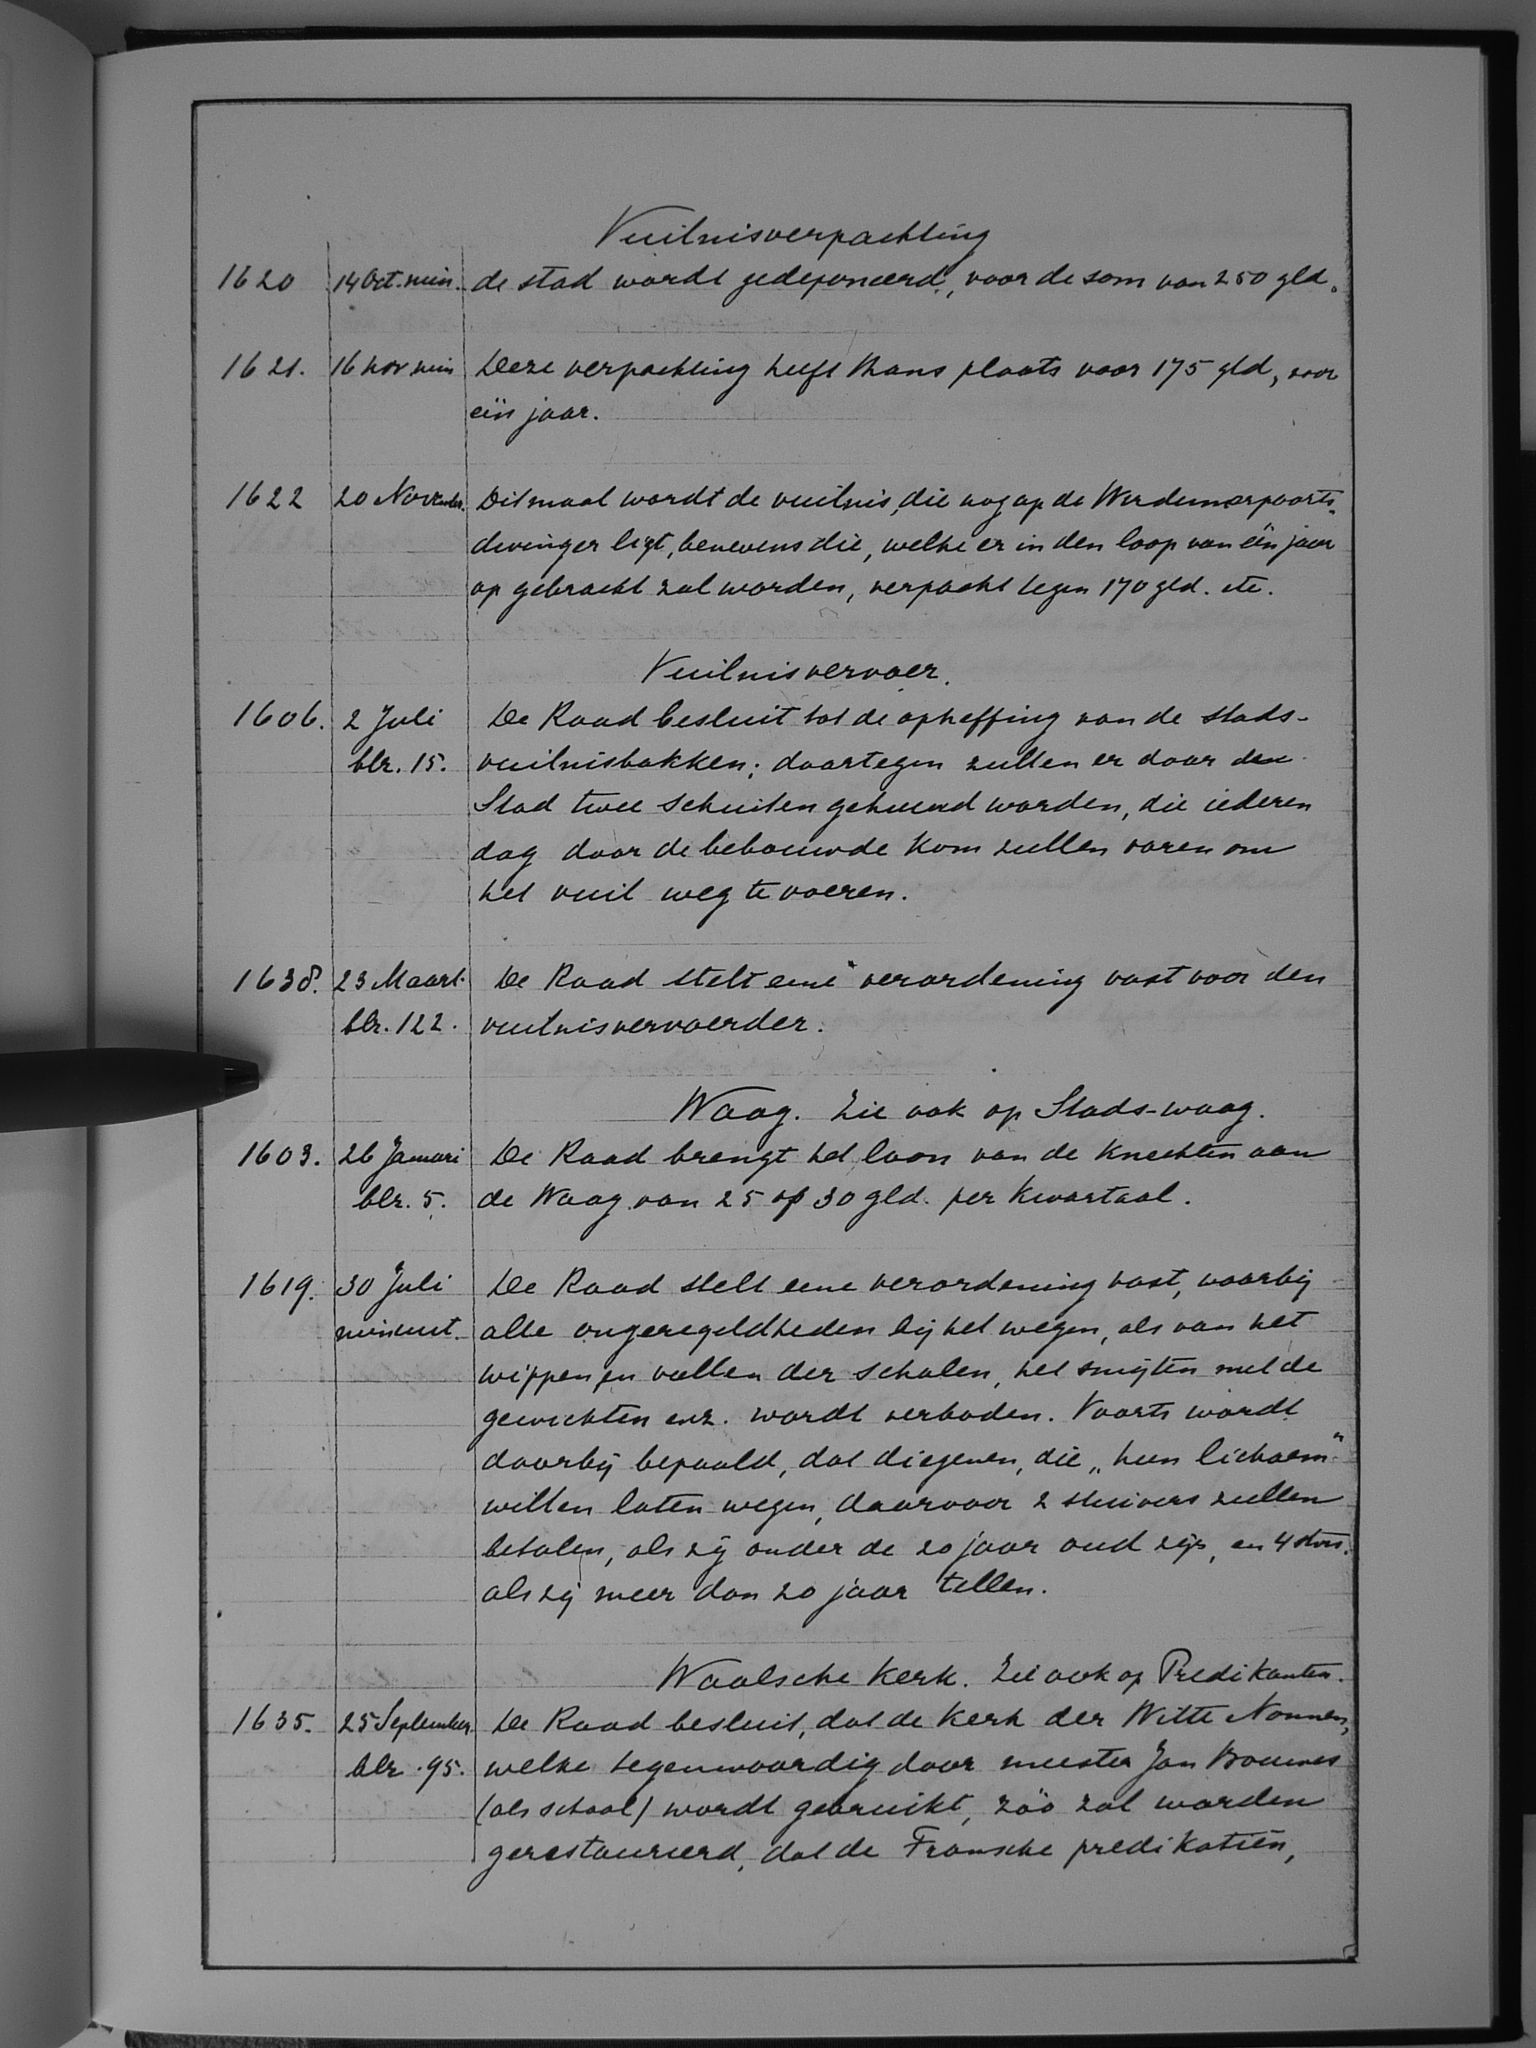 Vuilnisverpachting
1620 14 Oct. min. de stad wordt gedeponeerd, voor de som van 250 gld.
1621. 16 nov min Deze verpachting heeft thans plaats voor 175 gld, voor
één jaar.
1622 20 November. Ditmaal wordt de vuilnis, die nog op de Werdumerpoorts-
dwinger ligt, benevens die, welke er in den loop van één jaar
op gebracht zal worden, verpacht tegen 170 gld. etc.
Vuilnisvervoer.
1606. 2 Juli De Raad besluit tot de opheffing van de stads-
blz. 15. vuilnisbakken; daartegen zullen er door den
Stad twee schuiten gehuurd worden, die iederen
dag door de bebouwde kom zullen varen om
het vuil weg te voeren.
1638. 23 Maart. De Raad stelt eene verordening vast voor den
blz. 122. vuilnisvervoerder.
Waag. Zie ook op Stads-waag.
1603. 26 Januari De Raad brengt het loon van de knechten aan
blz. 5. de Waag van 25 op 30 gld. per kwartaal.
1619. 30 Juli De Raad stelt eene verordening vast, waarbij
minuut. alle ongeregeldheden bij het wegen, als van het
wippen en vallen der schalen, het smijten met de
gewichten enz. wordt verboden. Voorts wordt
daarbij bepaald, dat diegenen, die „hun lichaem"
willen laten wegen, daarvoor 2 stuivers zullen
betalen, als zij onder de 20 jaar oud zijn, en 4 stvrs.
als zij meer dan 20 jaar tellen.
Waalsche Kerk. Zie ook op Predikanten.
1635. 25 September De Raad besluit, dat de kerk der Witte Nonnen,
blz. 95. welke tegenwoordig door meester Jan Bouwes
(als school) wordt gebruikt, zóó zal worden
gerestaureerd, dat de Fransche predikatiën,